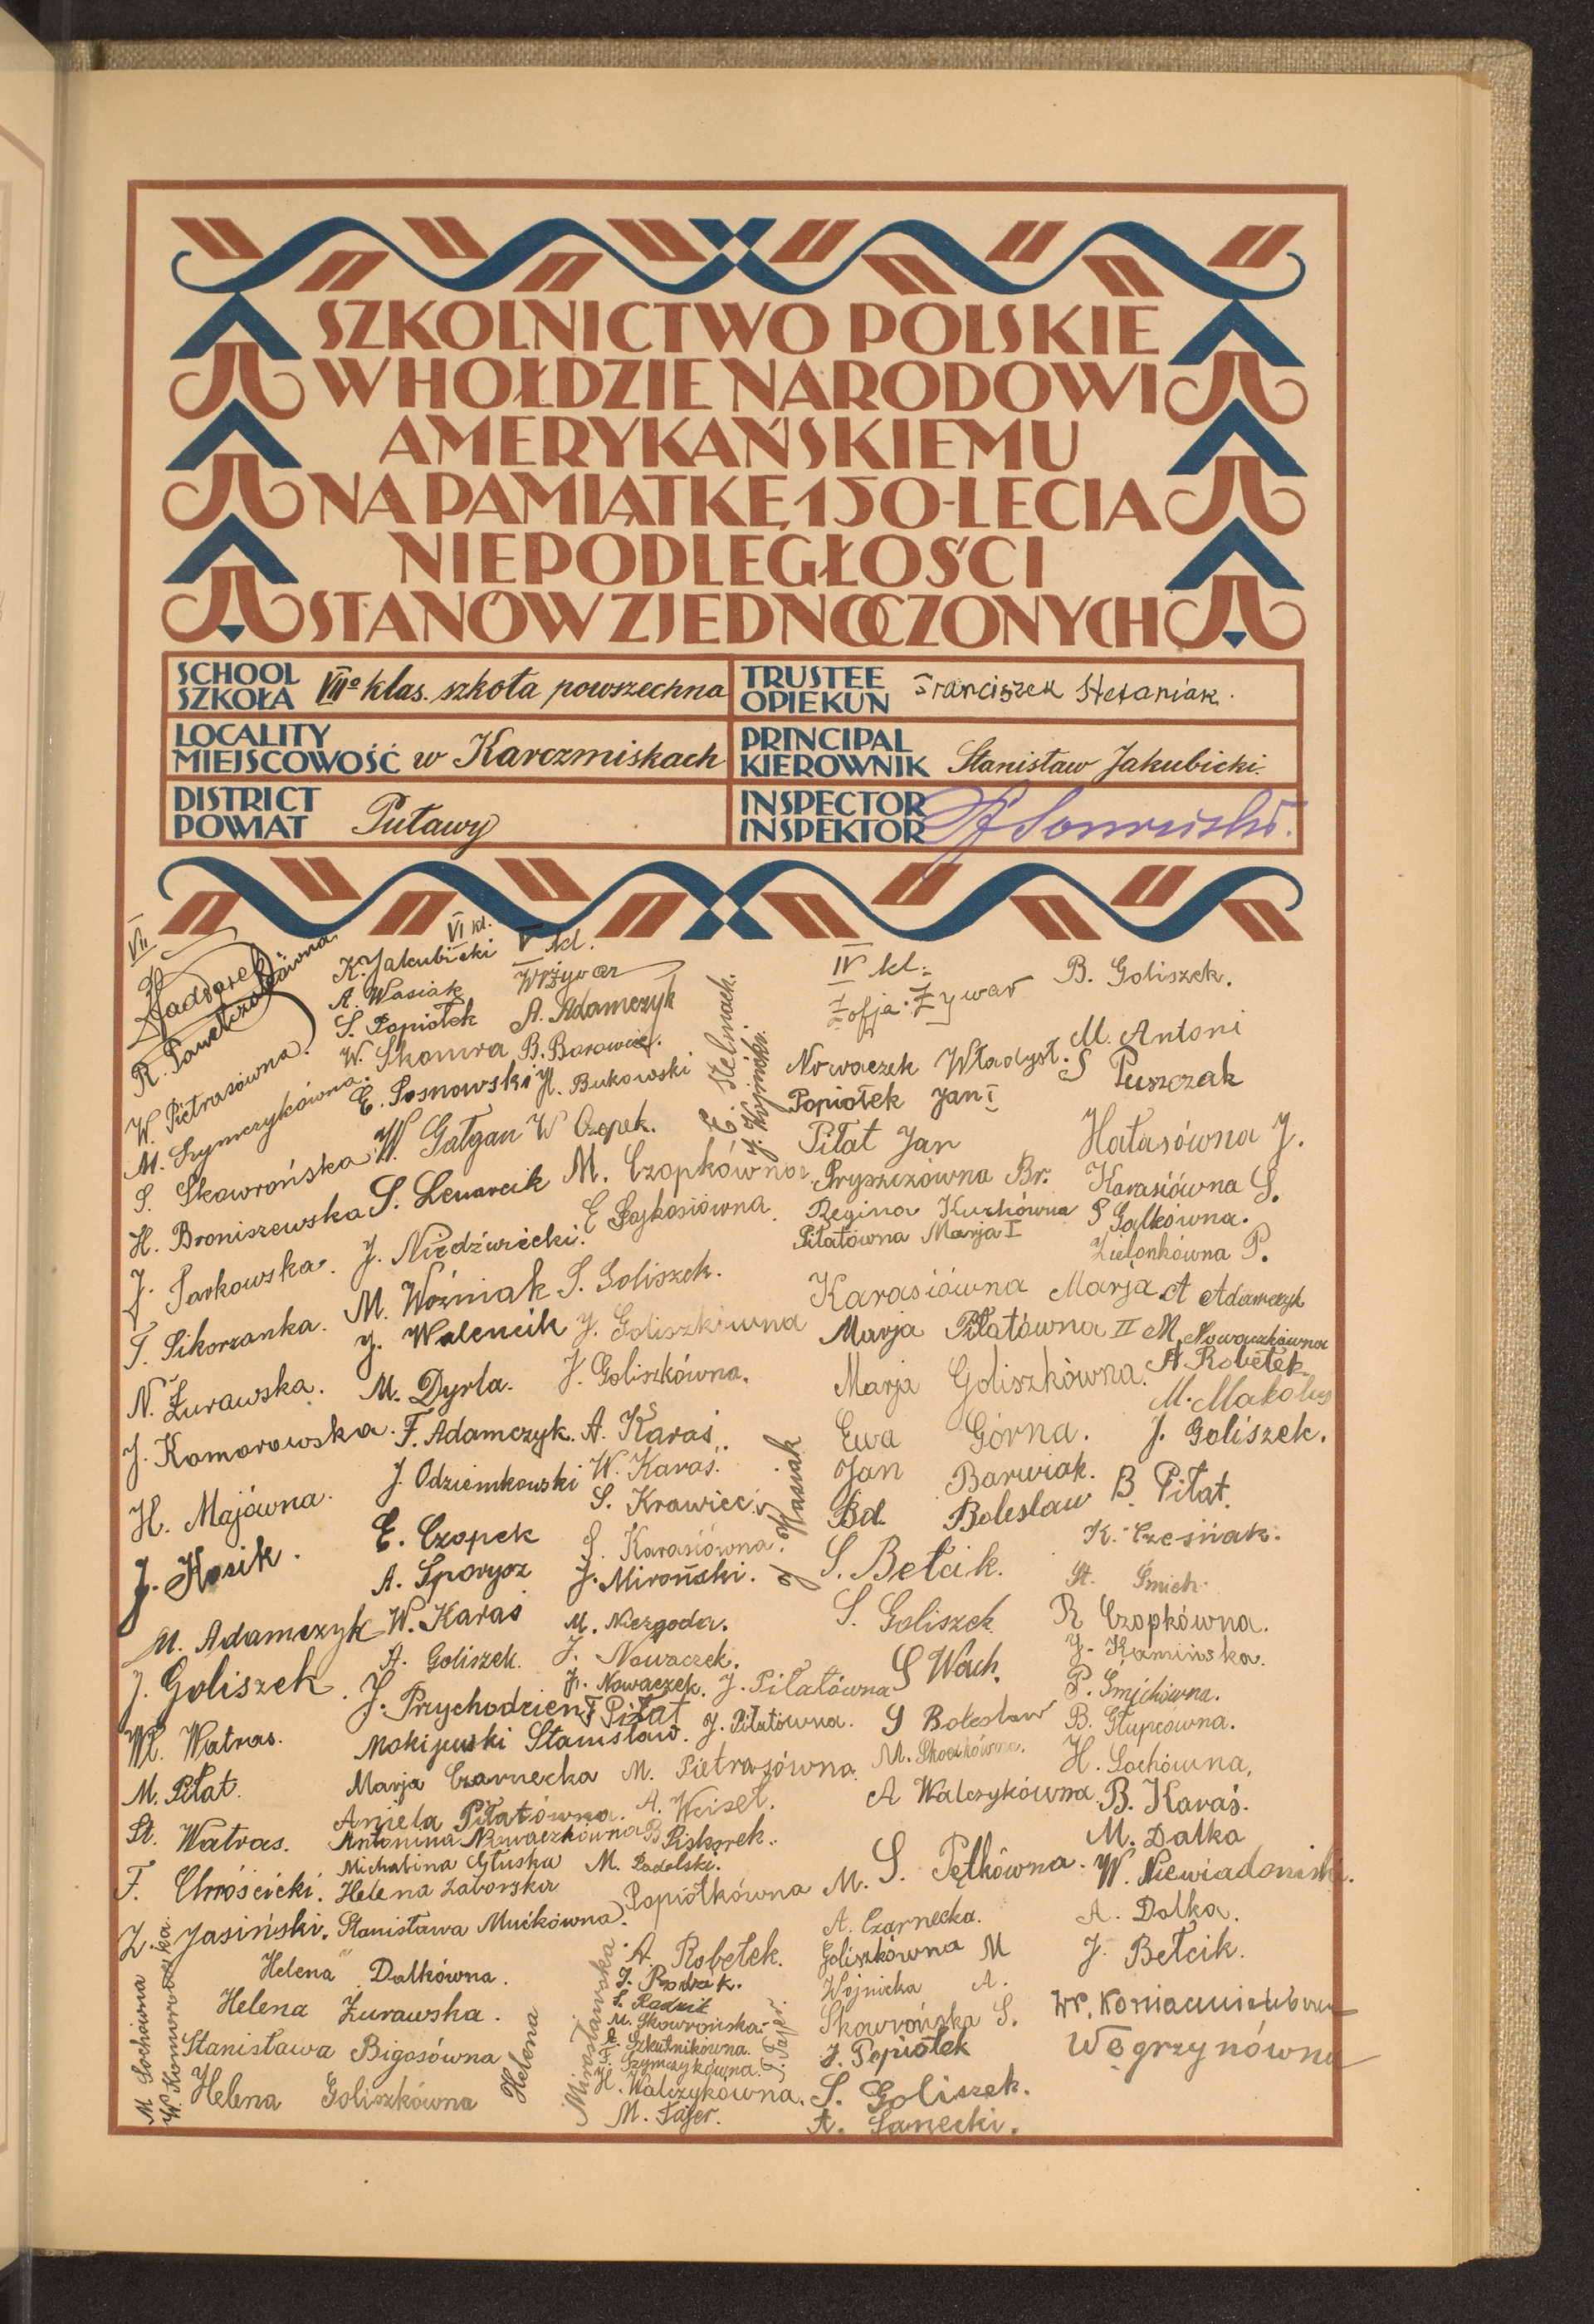 SZKOLNICTWO POLSKIE
W HOŁDZIE NARODOWI
AMERYKAŃSKIEMU
NA PAMIĄTKĘ 150-LECIA
NIEPODLEGŁOŚCI
STANÓW ZJEDNOCZONYCH
SCHOOL
SZKOŁA
VIIo klas. szkoła powszechna
TRUSTEE
OPIEKUN
Franciszek Stefaniak.
LOCALITY
MIEJSCOWOŚĆ
w Karczmiskach
PRINCIPAL
KIEROWNIK
Stanisław Jakubicki.
DISTRICT
POWIAT
Puławy
INSPECTOR
INSPEKTOR
VII
R. Pawełczakówna
W. Pietrasówna.
M. Szymczykówna.
S. Skowrońska
H. Broniszewska
J. Parkowska.
T. Sikorzanka.
N. Żurawska.
J. Komorowska.
H. Majówna.
J. Kosik.
M. Adamczyk
J. Goliszek.
Wł. Watras.
M. Piłat.
St. Watras.
F. Chróścicki.
Z. Jasiński.
M Sochówna
W. Komorowska.
Helena Dalkówna.
Helena Żurawska.
Stanisława Bigosówna
Helena Goliszkówna
VI kl.
K. Jakubicki
A. Wasiak
S. Popiołek
W. Skomra
E. Sosnowski
W. Gałgan
S. Lenarcik
J. Niedźwiecki.
M. Woźniak
J. Walencik
M. Dyrla.
F. Adamczyk.
J. Odziemkowski
E. Czopek
A. Sporysz
W. Karaś
A. Goliszek.
J. Przychodzień
Mokijewski Stanisław.
Marja Czarnecka
Aniela Piłatówna.
Antonina Nowaczkówna
Michalina Głuska
Helena Zaborska
Stanisława Mućkówna.
Helena
Mirosławska
V kl.
W Żywar
A. Adamczyk
B. Borowiec.
H. Bukowski
W Czopek.
M. Czopkówna
E Gajkosiówna.
S. Goliszek.
J. Goliszkówna
J. Goliszkówna.
A. Karaś.
W. Karaś.
S. Krawiec.
S. Karasiówna.
J. Miroński.
M. Niezgoda.
J. Nowaczek.
J. Nowaczek.
F Piłat
J. Piłatówna
J. Piłatówna.
M. Pietrasówna.
A. Weiseł.
B Piskorek.
M. Podolski.
Popiołkówna M.
A. Robełek.
S. Radzik
M. Skowrońska.
Szkutnikówna.
Szymczykówna.
H. Walczykówna.
M. Fajfer.
E. Helmach.
J. Kosiak
IV kl.
Zofja Żywar
Nowaczek Władysł.
Popiołek Jan I
Piłat Jan
Pryszczówna Br.
Regina Kuzkówna
Piłatówna Marja I
Karasiówna Marja
Marja Piłatówna II
Marja Goliszkówna.
Ewa Górna.
Jan Barwiak.
Bolesław
S. Bełcik.
S. Goliszek
S Wach.
S Bolesław
A Walczykówna
S. Pętkówna.
A. Czarnecka.
Goliszkówna M
Wójnicka A.
Skowrońska S.
J. Popiołek
S. Goliszek.
A. Sanecki.
B. Goliszek.
M. Antoni
S Puszczak
Hałasówna J.
Karasiówna S.
S Gałkówna.
Zielonkówna P.
A Adamczyk
M. Nowaczkówna
A Robełek
M. Makolus
J. Goliszek.
B. Piłat.
K. Cześniak.
St. Śmich.
R Czopkówna.
J. Kamińska.
P. Śmichówna.
B. Głupcówna.
H. Sochówna,
B. Karaś.
M. Dalka
W. Niewiadomski.
A. Dolka.
J. Bełcik.
Węgrzynówna